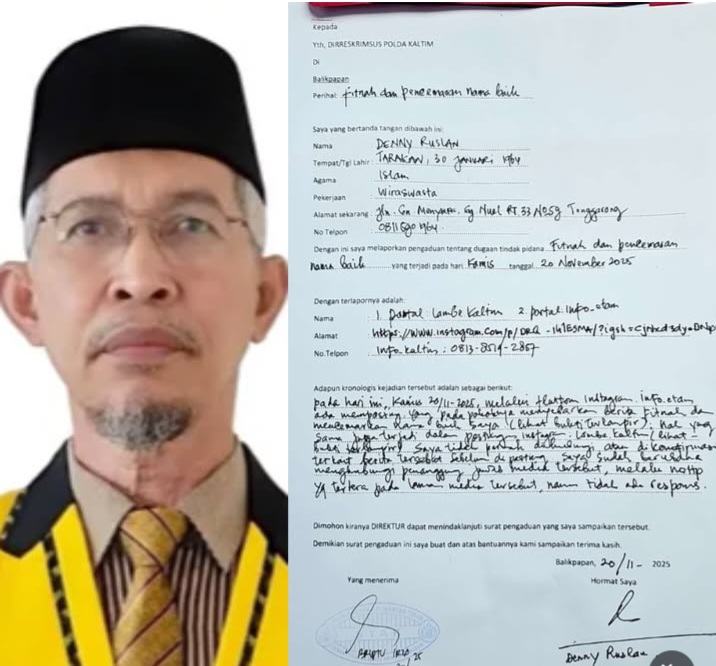 Kepada
Yth, DIRRESKRIMSUS POLDA KALTIM
Di
Balikpapan
Perihal : Fitnah dan pencemaran nama baik
Saya yang bertanda tangan dibawah ini:
Nama : DENNY RUSLAN
Tempat/Tgl Lahir : TARAKAN, 30 JANUARI 1964
Agama : Islam
Pekerjaan : Wiraswasta
Alamat sekarang : Jln. Gn Menyapa. Gg Nuel RT.33/No59 Tenggarong
No Telpon : 0811590764
Dengan ini saya melaporkan pengaduan tentang dugaan tindak pidana Fitnah dan pencemaran
nama baik yang terjadi pada hari Kamis tanggal 20 November 2025
Dengan terlapornya adalah:
Nama : 1. Portal Lambe Kaltim 2. portal.info_etam
Alamat : https://www.instagram.com/p/
No.Telpon : Info_kaltim : 0813-8519-2857
Adapun kronologis kejadian tersebut adalah sebagai berikut:
pada hari ini, Kamis 20/11-2025, melalui flatform Instagram info.etam
ada memposting yang pada pokoknya menyebarkan berita Fitnah dan
mencemarkan nama baik saya (lihat bukti terlampir). Hal yang
sama juga terjadi dalam posting instagram lambe kaltim (lihat
bukti terlampir). Saya tidak pernah dihubungi atau di konfirmasi
terkait berita tersebut sebelum di posting. Saya sudah berusaha
menghubungi penanggung jawab media tersebut, melalui no Hp
yg tertera pada laman media tersebut, namun tidak ada respons.
Dimohon kiranya DIREKTUR dapat menindaklanjuti surat pengaduan yang saya sampaikan tersebut.
Demikian surat pengaduan ini saya buat dan atas bantuannya kami sampaikan terima kasih.
Balikpapan, 20/11- 2025
Yang menerima
Hormat Saya
BRIPTU
Denny Ruslan